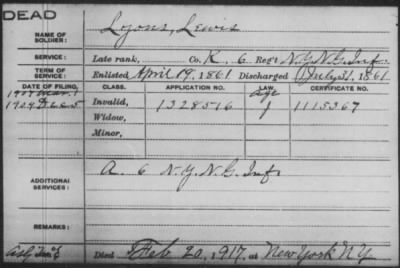 DEAD
NAME OF SOLDIER: Lyons, Lewis
SERVICE: Late rank, Co. K, 6 Reg't N.Y.N.G. Inf.
TERM OF SERVICE: Enlisted April 19, 1861 Discharged July 31, 1861
DATE OF FILING. CLASS. APPLICATION NO. LAW. CERTIFICATE NO.
Age
1904 Dec 5 Invalid, 1328516 J 1115367
Widow,
Minor,
ADDITIONAL SERVICES: A. 6 N.Y.N.G. Inf
REMARKS:
Died Feb 20, 1917, at New York N.Y.